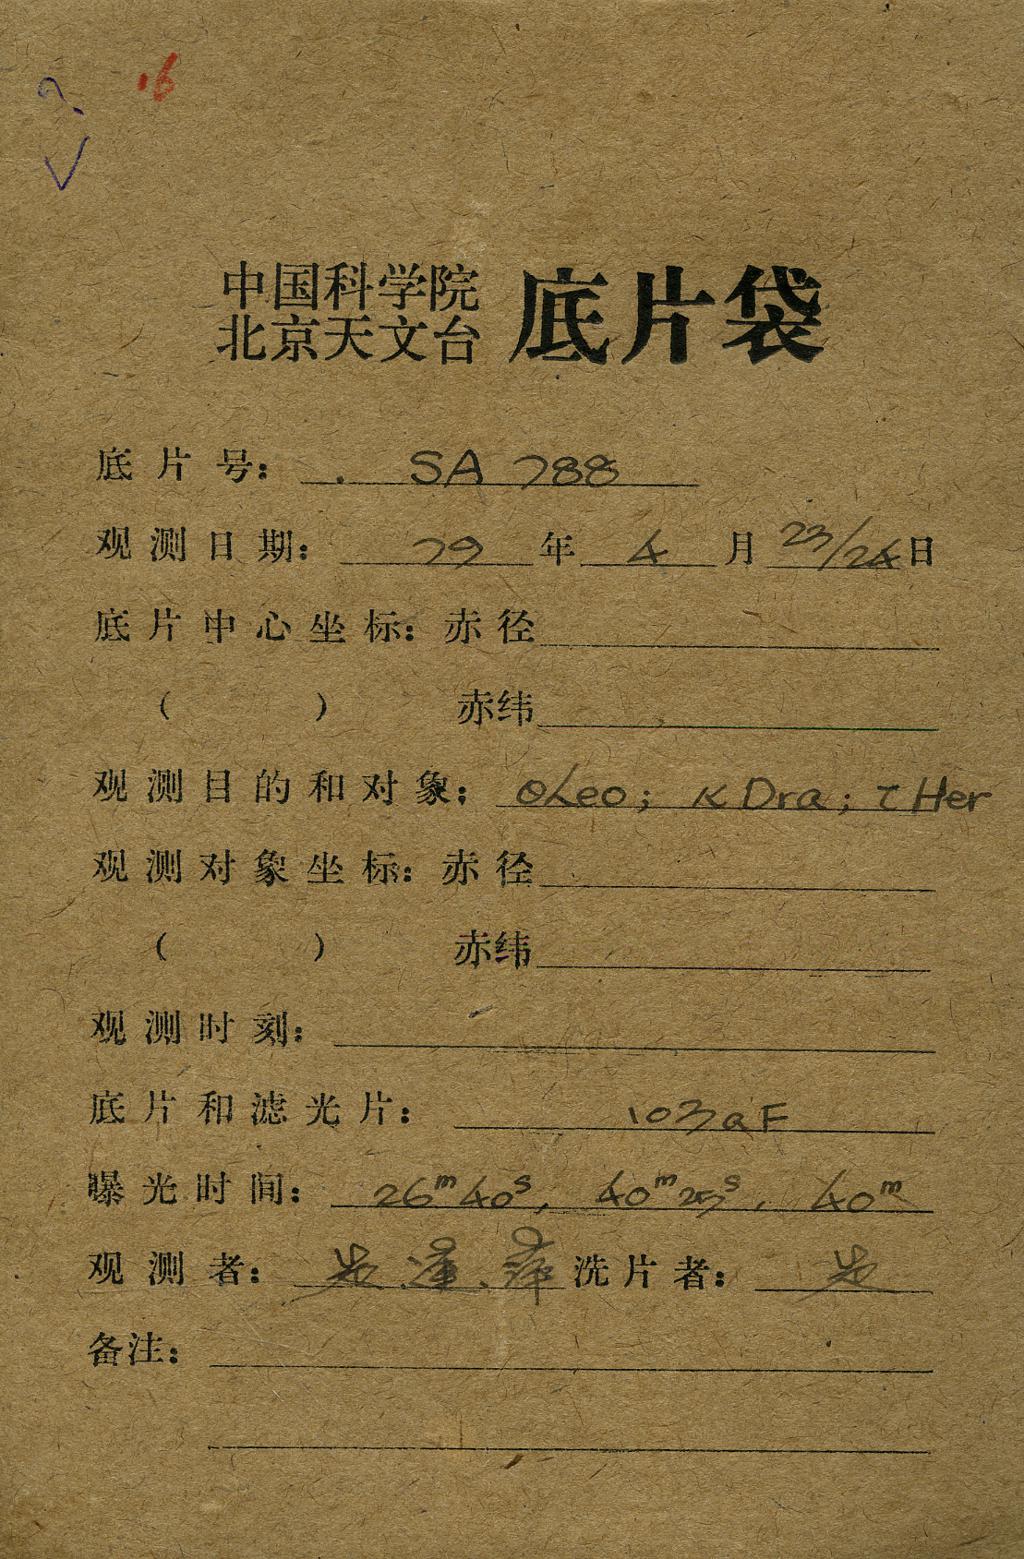 16
?
中国科学院
北京天文台 底片袋
底片号: SA 788
观测日期: 79 年 4 月 23/24 日
底片中心坐标: 赤径
( ) 赤纬
观测目的和对象: θLeo; κ Dra; τ Her
观测对象坐标: 赤径
( ) 赤纬
观测时刻:
底片和滤光片: 103aF
曝光时间: 26ᵐ40ˢ, 40ᵐ25ˢ, 40ᵐ
观测者: 洗片者:
备注: